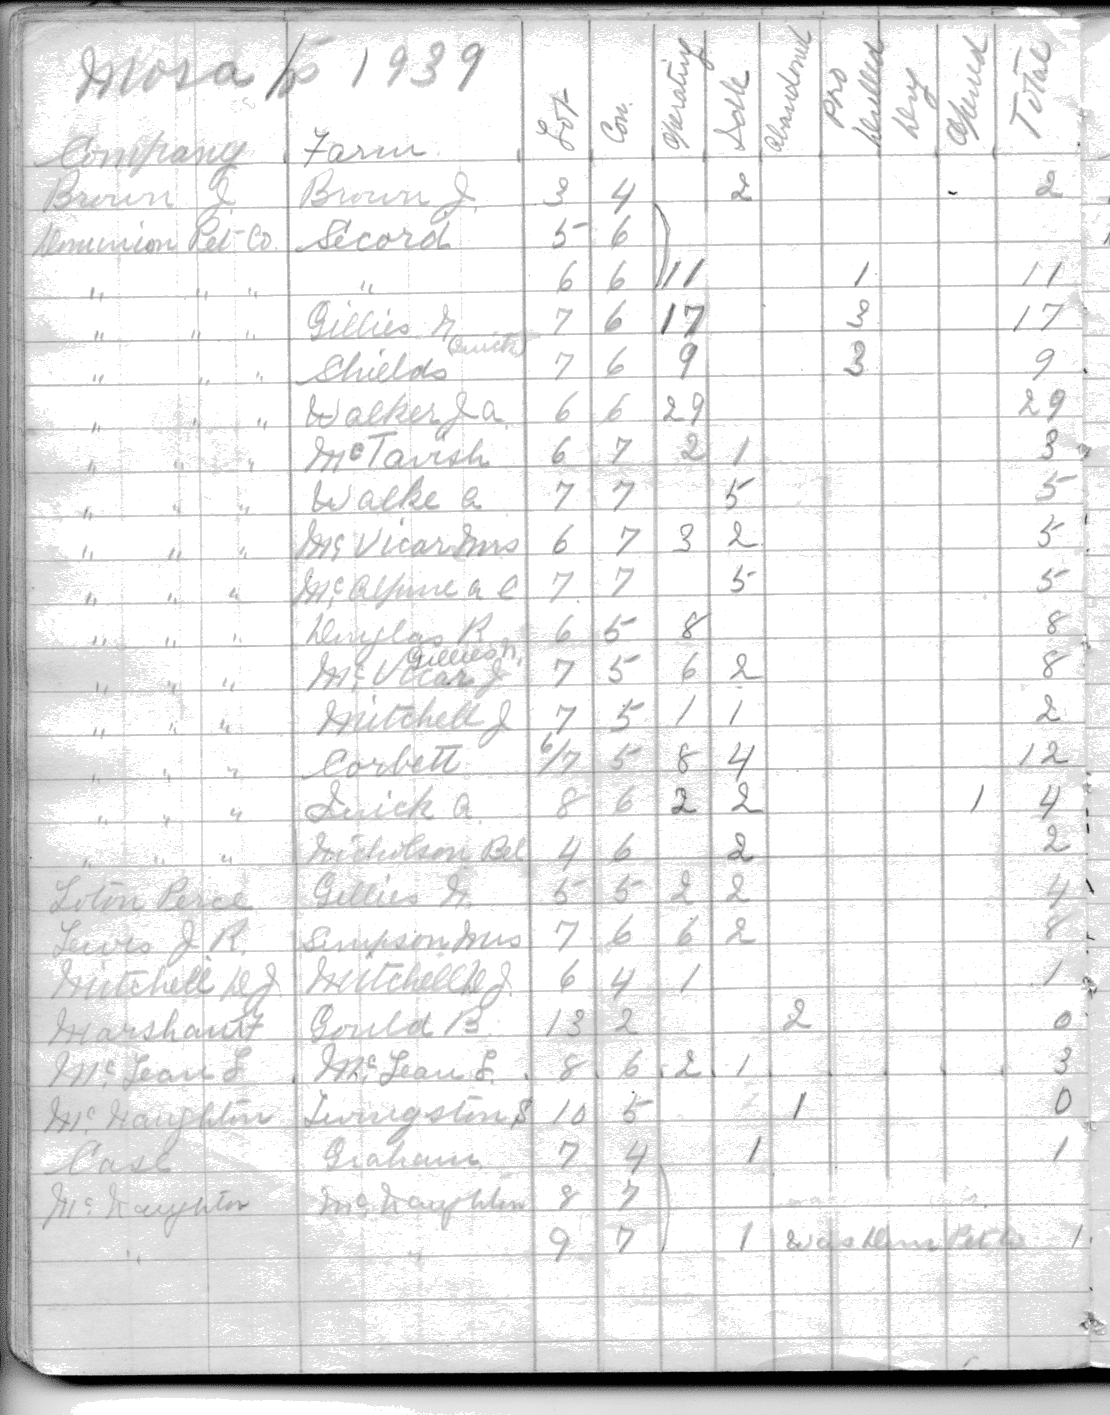 Mosa 1939
Company Farm Lot Con. Operating Idle Abandoned Pro Drilled Dry Opened Total
Brown J. Brown J. 3 4 2 2
Dominion Pet Co. Secord 5 6
" " " " 6 6 11 1 11
" " " Gillies N. 7 6 17 3 17
" " " Shields (Quick) 7 6 9 3 9
" " " Walker J a. 6 6 29 29
" " " McTavish 6 7 2 1 3
" " " Walke a 7 7 5 5
" " " Mc Vicar Mrs 6 7 3 2 5
" " " Mc Alpine a C 7 7 5 5
" " " Douglas R 6 5 8 8
" " " Mc Vicar J Gillies N. 7 5 6 2 8
" " " Mitchell J 7 5 1 1 2
" " " Corbett 6/7 5 8 4 12
" " " Quick a. 8 6 2 2 1 4
" " " Nicholson Bel 4 6 2 2
Loton Perce Gillies N. 5 5 2 2 4
Lewis J R. Simpson Mrs 7 6 6 2 8
Mitchell D J. Mitchell D J. 6 4 1 1
Marshall F Gould B 13 2 2 0
Mc Lean L. Mc Lean L. 8 6 2 1 3
Mc Naughton Livingston S 10 5 1 0
Case Graham 7 4 1 1
Mc Naughton Mc Naughton 8 7
" " 9 7 1 was Dom Pet Co 1